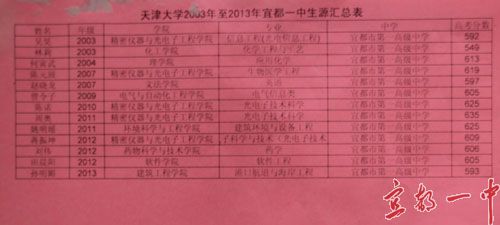 天津大学2003年至2013年宜都一中生源汇总表
姓名 年级 学院 专业 中学 高考分数
吴昊 2003 精密仪器与光电子工程学院 信息工程(光电信息工程) 宜都市第一高级中学 592
林莉 2003 化工学院 化学工程与工艺 宜都市第一高级中学 549
2004 理学院 应用化学 宜都市第一高级中学 613
2007 精密仪器与光电子工程学院 生物医学工程 宜都市第一高级中学 619
赵晓龙 2007 文法学院 宜都市第一高级中学 597
2009 电气与自动化工程学院 电气信息类 宜都市第一高级中学 605
陈诺 2010 精密仪器与光电子工程学院 光电子技术科学 宜都市第一高级中学 625
周奥 2011 精密仪器与光电子工程学院 光电子技术科学 宜都市第一高级中学 635
姚明媚 2011 环境科学与工程学院 建筑环境与设备工程 宜都市第一高级中学 625
蒋振坤 2012 精密仪器与光电子工程学院 子科学与技术(光电子技术 宜都市第一高级中学 609
刘伟 2012 药物科学与技术学院 药学 宜都市第一高级中学 606
田晨阳 2012 软件学院 软件工程 宜都市第一高级中学 605
孙明媚 2013 建筑工程学院 港口航道与海岸工程 宜都市第一高级中学 593
宜都一中